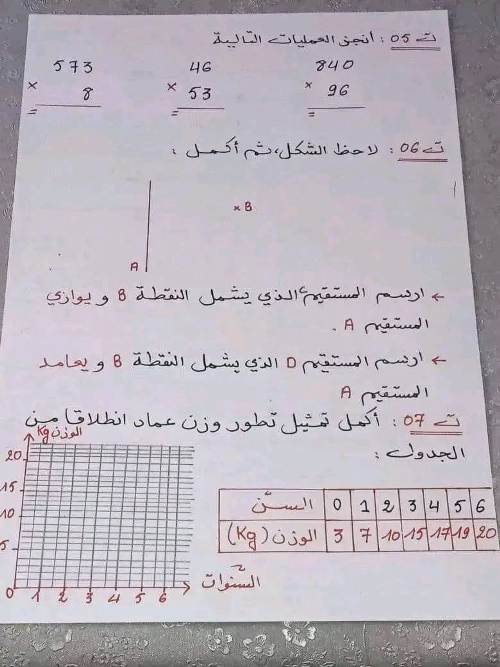 ت 05 : أنجز العمليات التالية
573 46 840
× 8 × 53 × 96
= = =
ت 06 : لاحظ الشكل، ثم أكمل :
×B
A
← ارسم المستقيم C الذي يشمل النقطة B و يوازي
المستقيم A .
← ارسم المستقيم D الذي يشمل النقطة B و يعامد
المستقيم A
ت 07 : أكمل تمثيل تطور وزن عماد انطلاقا من
الجدول :
الوزن Kg
20
15
10
5
0 1 2 3 4 5 6
السنوات
السنّ 0 1 2 3 4 5 6
الوزن (Kg) 3 7 10 15 17 19 20